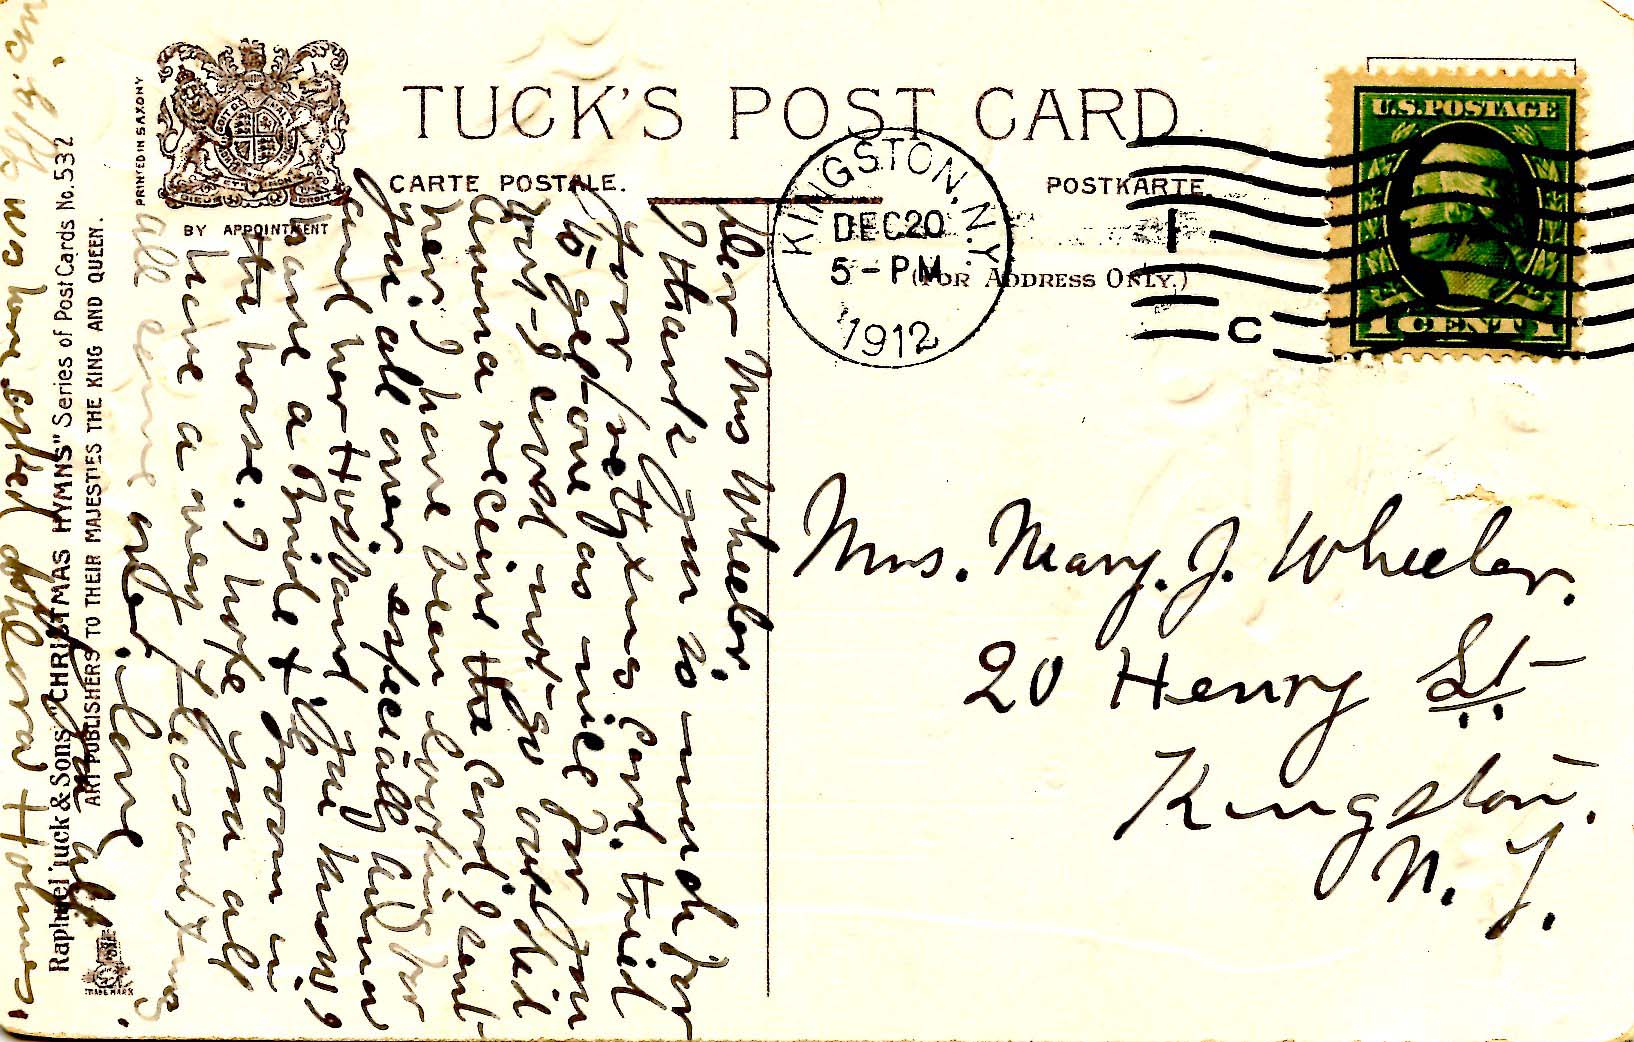 TUCK'S POST CARD
CARTE POSTALE.
POSTKARTE.
(FOR ADDRESS ONLY.)
BY APPOINTMENT
PRINTED IN SAXONY
Raphael Tuck & Sons' "CHRISTMAS HYMNS" Series of Post Cards No. 532
ART PUBLISHERS TO THEIR MAJESTIES THE KING AND QUEEN.
TRADE MARK
KINGSTON, N.Y.
DEC 20
5-PM
1912
1
C
U.S. POSTAGE
1 CENT 1
Mrs. Mary. J. Wheeler.
20 Henry St
Kingston.
N. Y.
Dear Mrs Wheeler.
I thank you so much for
your pretty xmas Card. tried
to get one as nice for you
but I could not go out did
Anna receive the Card I sent
her. I have been looking for
you all over especially Anna
and her Husband you know I
have a Bride & groom in
the house. I hope you all
have a very pleasant Xmas
all
Love
to you all
Holmes.